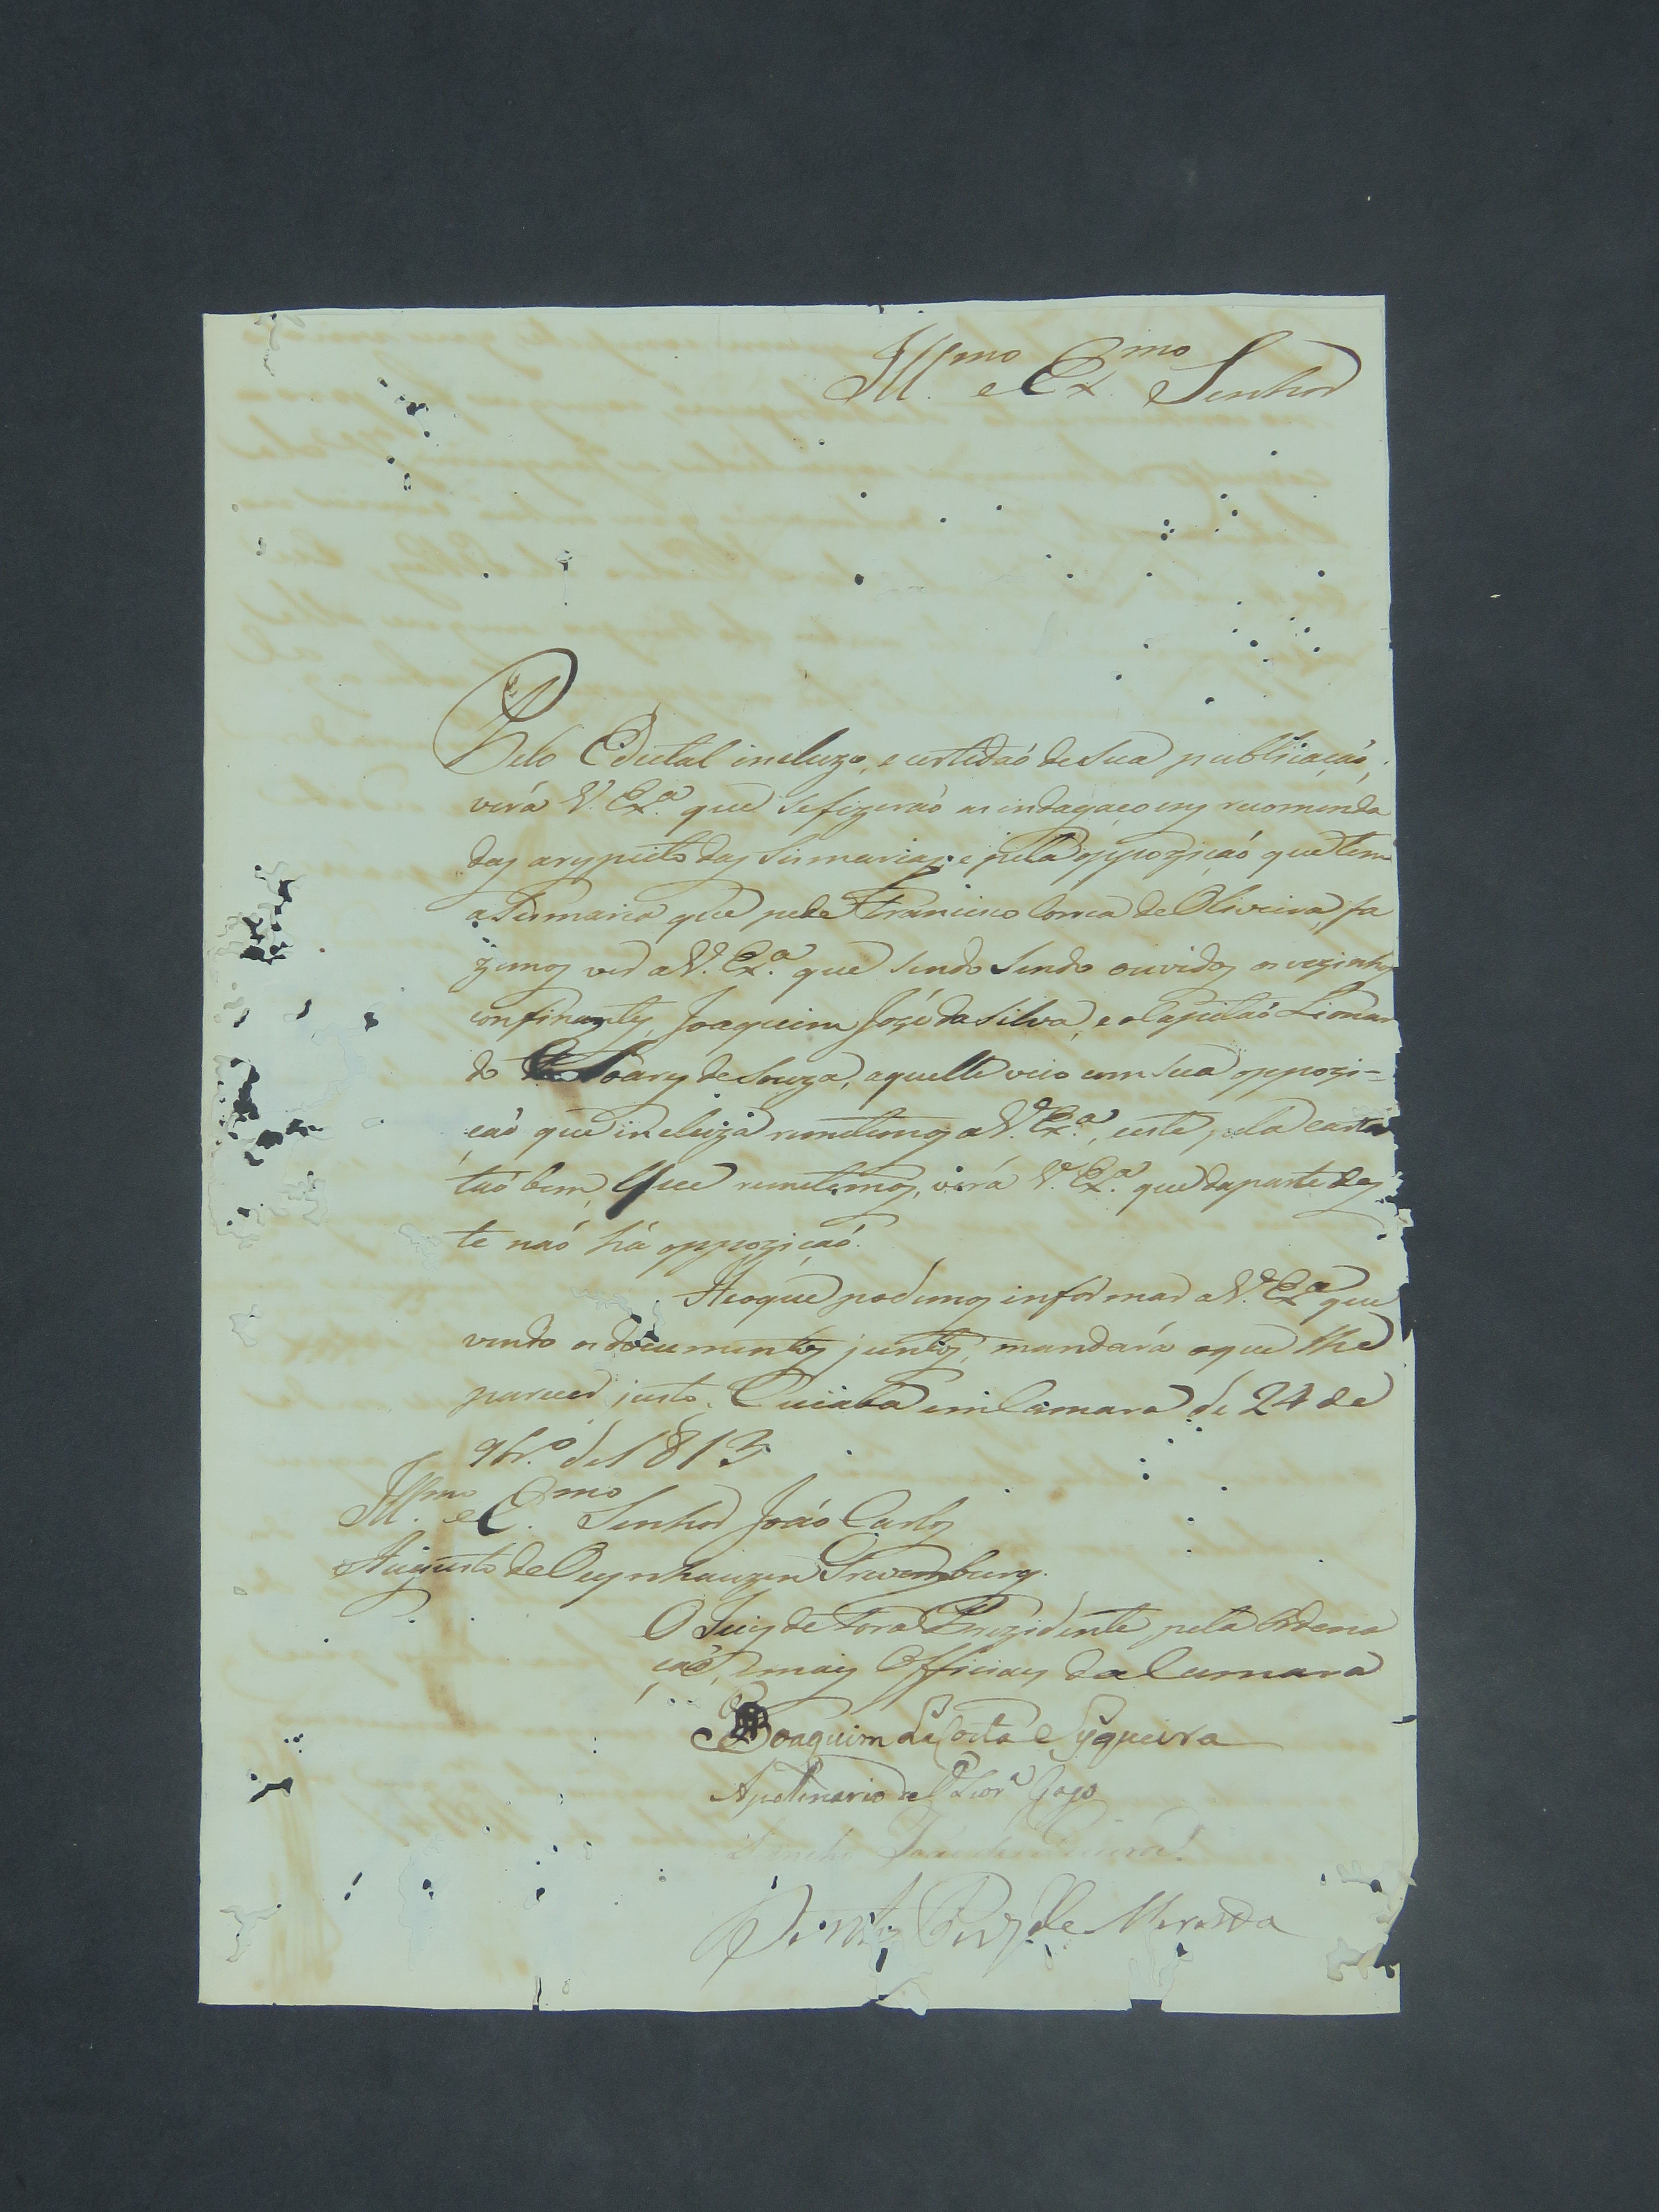 Ill.mo e Ex.mo Senhor
Pelo Edictal incluzo, e certidaõ de sua publicaçaõ,
verá V. Ex.ª que se fizeraõ as indagaçoens recomenda
das arespeito das Sismarias; e pela oppoziçaõ que tem
a Sismaria que pede Francisco Correa de Oliveira, fa
zemos ver a V. Ex.ª que sendo sendo ouvidos os vezinhos
confinantes, Joaquim Jozé da Silva, e o Capitaõ Lionar
do Soares de Souza, aquelle veio com sua oppozi=
çaõ que incluza remetemos a V. Ex.ª, e este pela carta
taõ bem, que remetemos, verá V. Ex.ª que da parte des
te naõ há oppoziçaõ.
He oque podemos informar a V. Ex.ª que
vendo os documentos juntos, mandará oque lhe
parecer justo. Cuiabá em Camara de 24 de
9br.º de 1813
Ill.mo e E.mo Senhor Joaõ Carlos
Augusto de Oeynhauzen Grevemburg.
O Juiz de Fora Prezidente pela Ordena
çaõ, e mais Officiaes da Camara
Joaquim da Costa e Syqueira
Apolinario de Olivr.ª Gago
de Miranda